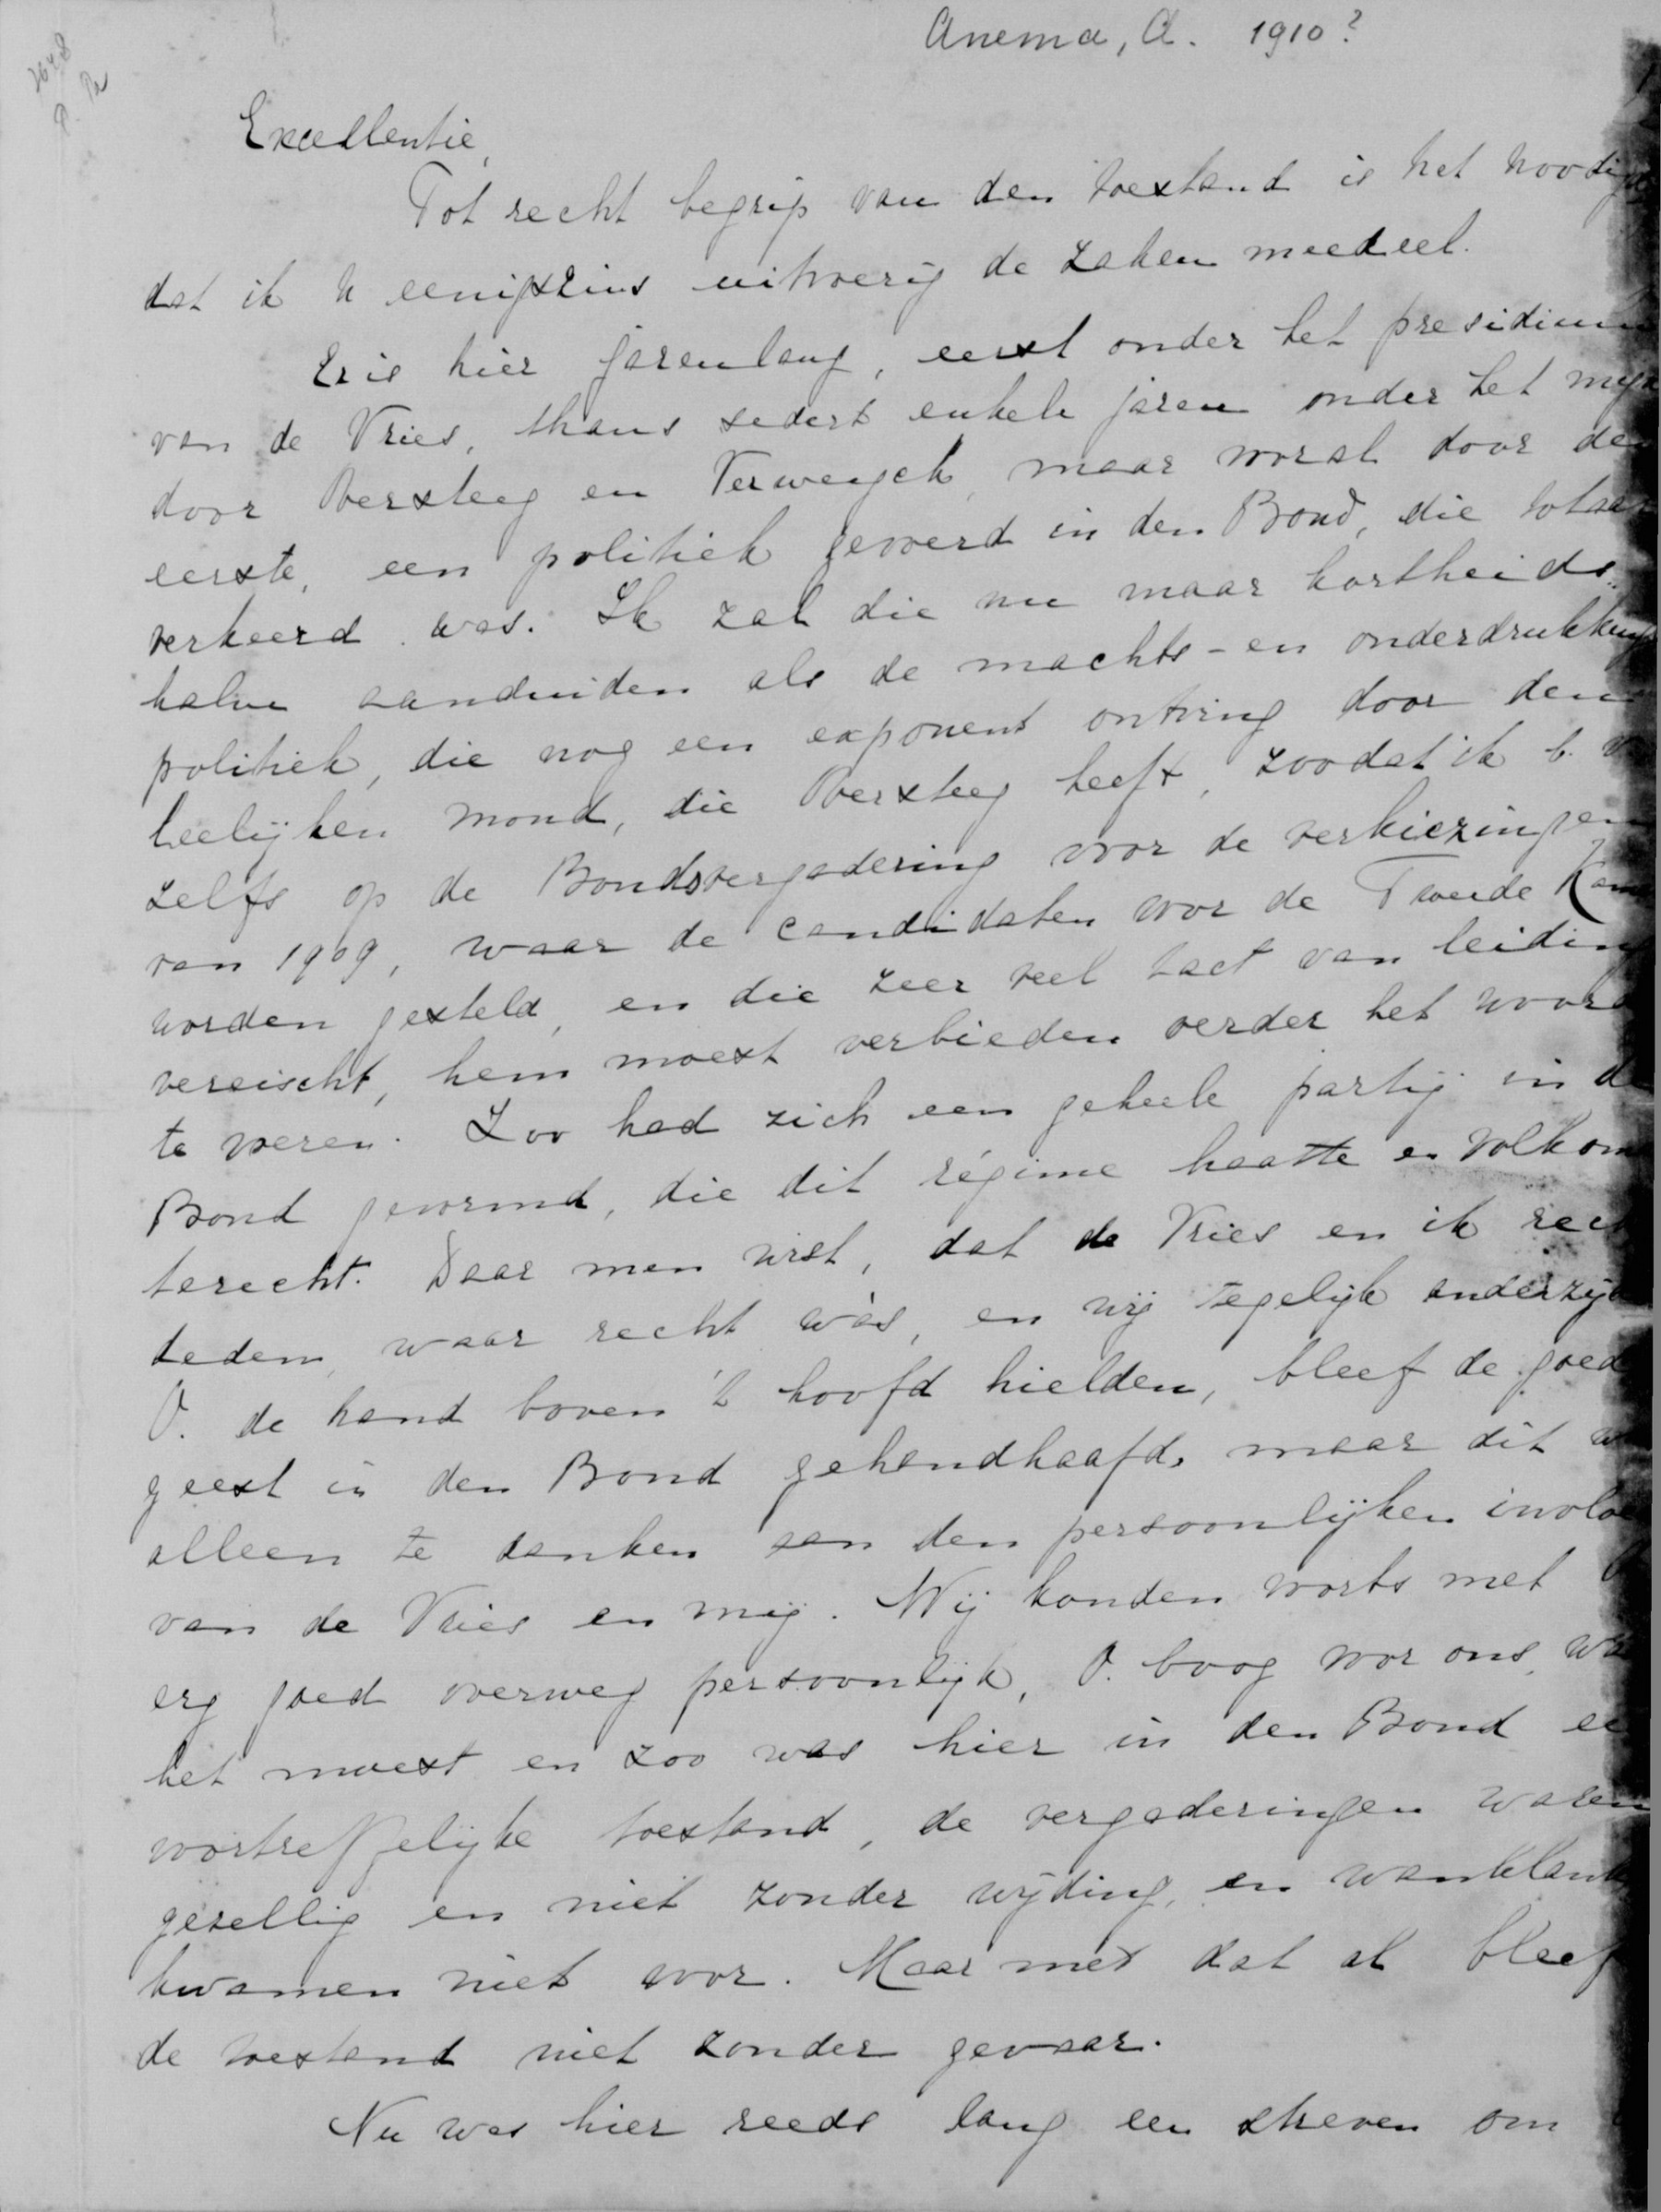 Anema, A. 1910?
Excellentie,
Tot recht begrip van den toestand is het noodig
dat ik U eenigszins uitvoerig de zaken meedeel.
Er is hier jarenlang, eerst onder het presidium
van de Vries, thans sedert enkele jaren onder het mijne
door Oversteeg en Verweyck, maar vooral door den
eerste, een politiek gevoerd in den Bond, die totaal
verkeerd was. Ik zal die nu maar kortheids-
halve aanduiden als de machts- en onderdrukkings
politiek, die nog een exponent ontving door den
leelijken mond, die Oversteeg heeft, zoodat ik b.v.
zelfs op de Bondsvergadering voor de verkiezingen
van 1909, waar de candidaten voor de Tweede Kamer
worden gesteld, en die zeer veel tact van leiding
vereischt, hem moest verbieden verder het woord
te voeren. Zoo had zich een geheele partij in de
Bond gevormd, die dit régime haatte en volkomen
terecht. Daar men wist, dat de Vries en ik recht
deden, waar recht wàs, en wij tegelijk anderzijds
O. de hand boven 't hoofd hielden, bleef de goede
geest in den Bond gehandhaafd, maar dit was
alleen te danken aan den persoonlijken invloed
van de Vries en mij. Wij konden voorts met O.
erg goed overweg persoonlijk, O. boog voor ons, waar
het moest en zoo was hier in den Bond een
voortreffelijke toestand, de vergaderingen waren
gezellig en niet zonder wijding, en wanklanken
kwamen niet voor. Maar met dat al bleef
de toestand niet zonder gevaar.
Nu was hier reeds lang een streven om